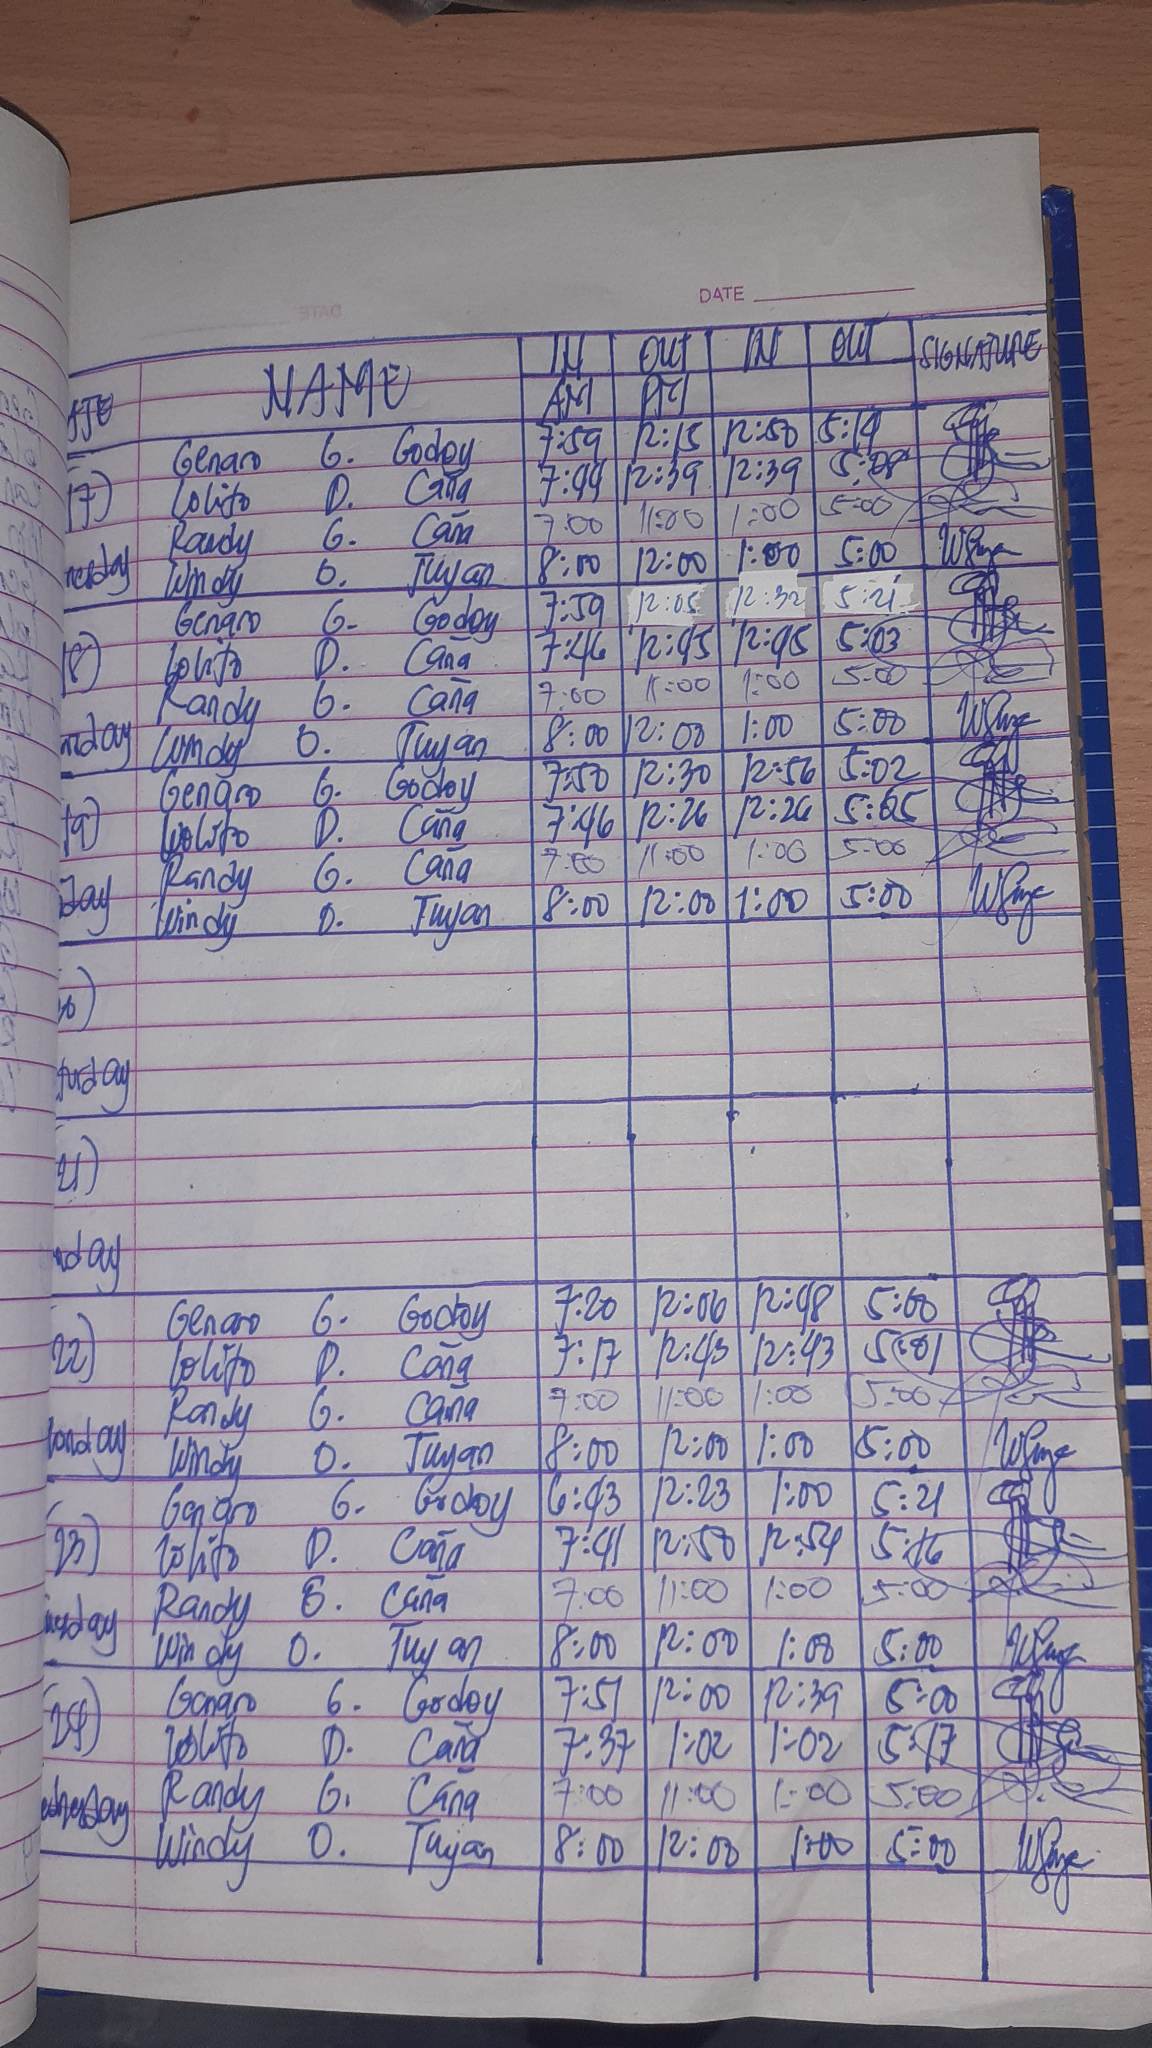 DATE
NAME IN OUT IN OUT SIGNATURE
AM PM
Genaro G. Godoy 7:59 12:15 12:50 5:14
17) Lolito D. Caña 7:44 12:39 12:39 5:08
Randy G. Caña 7:00 11:00 1:00 5:00
nesday Windy O. Tuyan 8:00 12:00 1:00 5:00
Genaro G. Godoy 7:59 12:05 12:32 5:21
18) Lolito D. Caña 7:46 12:45 12:45 5:03
Randy G. Caña 7:00 11:00 1:00 5:00
rsday Windy O. Tuyan 8:00 12:00 1:00 5:00
Genaro G. Godoy 7:50 12:30 12:56 5:02
19) Lolito D. Caña 7:46 12:26 12:26 5:05
Randy G. Caña 7:00 11:00 1:00 5:00
day Windy O. Tuyan 8:00 12:00 1:00 5:00
20)
turday
21)
nday
Genaro G. Godoy 7:20 12:06 12:48 5:00
22) Lolito D. Caña 7:17 12:43 12:43 5:01
Randy G. Caña 7:00 11:00 1:00 5:00
onday Windy O. Tuyan 8:00 12:00 1:00 5:00
Genaro G. Godoy 6:43 12:23 1:00 5:21
23) Lolito D. Caña 7:41 12:50 12:54 5:16
Randy G. Caña 7:00 11:00 1:00 5:00
uesday Windy O. Tuyan 8:00 12:00 1:00 5:00
Genaro G. Godoy 7:51 12:00 12:39 5:00
24) Lolito D. Caña 7:37 1:02 1:02 5:17
Randy G. Caña 7:00 11:00 1:00 5:00
ednesday Windy O. Tuyan 8:00 12:00 1:00 5:00